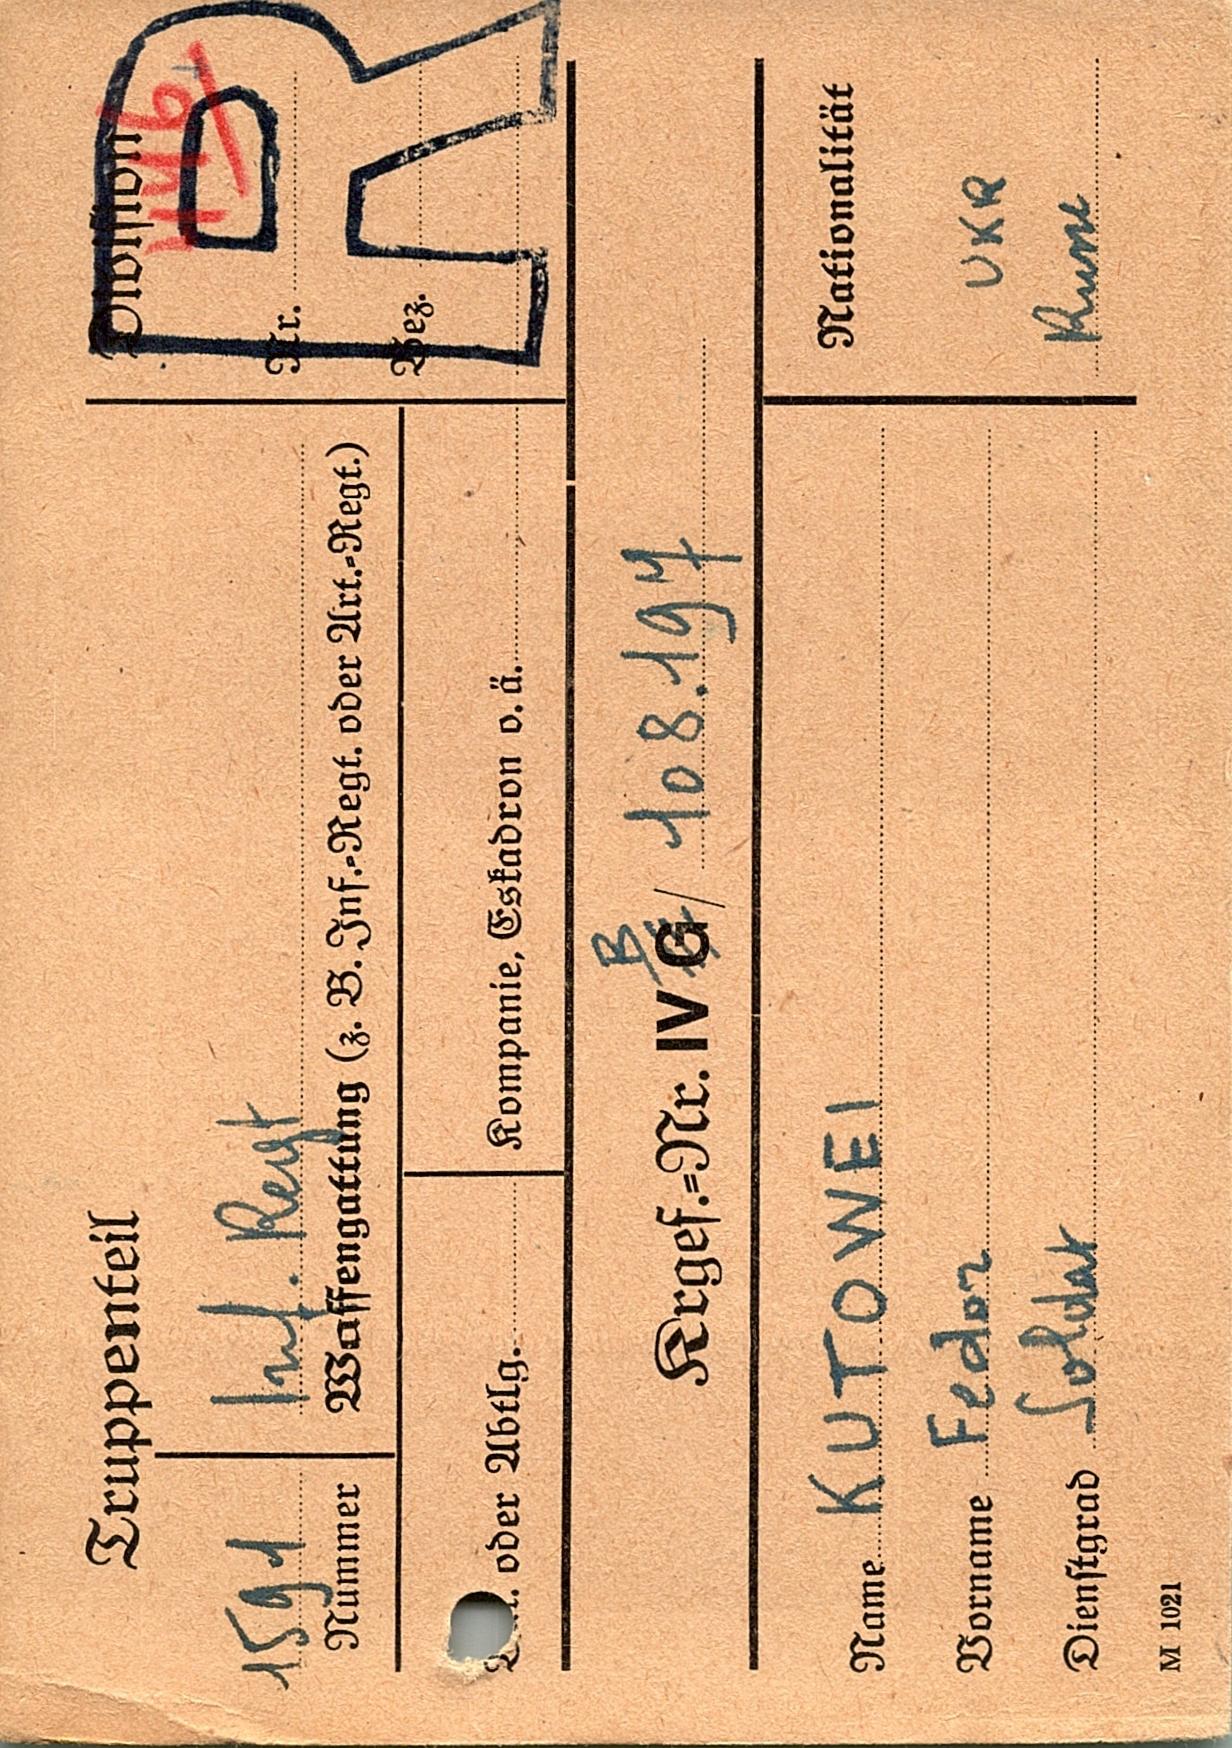 Truppenteil
Division
1591
Inf. Regt
Nummer
Waffengattung (z. B. Inf.-Regt. oder Art.-Regt.)
Nr.
Bez.
oder Abtlg.
Kompanie, Eskadron o. ä.
R
Krgef.=Nr. IV G / 108.197
B
Name KUTOWEI
Nationalität
Vorname Fedor
UKR
Dienstgrad Soldat
Russe
M 1021